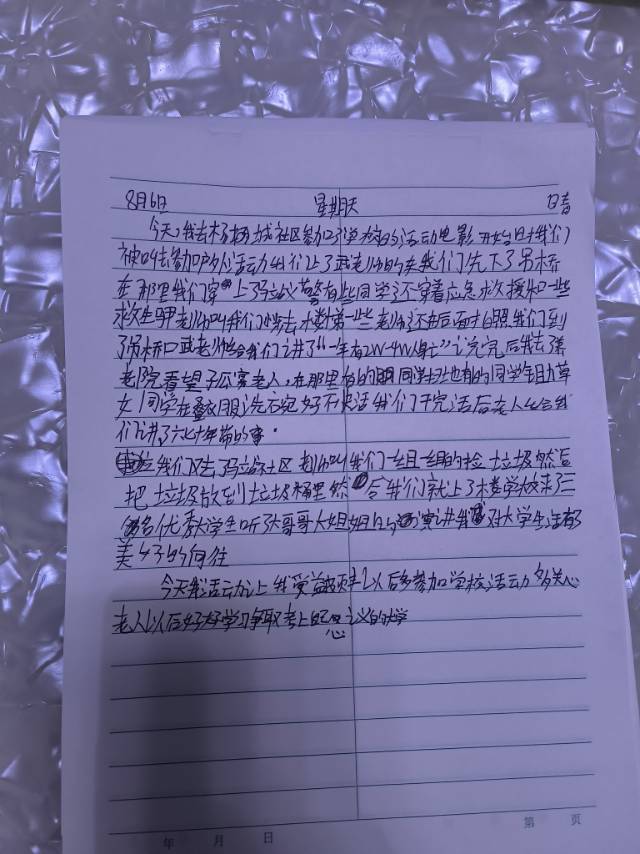 8月6日 星期天 日青
今天,我去杨城社区参加了学校的活动电影开始时我们
被叫去参加活动我们上了武老师的车我们先下了吊桥
在那里我们穿上马站义警有些同学还穿着应急救援和一些
救生甲老师叫我们去一些老师还在后面拍照我们到
了吊桥口武老师给我们讲了"一年有2W-4W人"说完后我去了养
老院看望了孤寡老人,在那里有的同学扫地有的同学锄草
女同学在叠衣服洗衣宛好不快活我们干完活后老人给我
们讲了六七十年带的事.
我们又去了马站社区老师叫我们一组一组的捡垃圾然后
把垃圾放到垃圾桶里然后我们就上了楼学校来了三
名优秀学生听了大哥哥大姐姐的演讲我对大学生活有了
美好的向往
今天我活动让我受益颇丰以后多参加学校活动多关心
老人以后好好学习争取考上理思义的大学
年 月 日 第 页